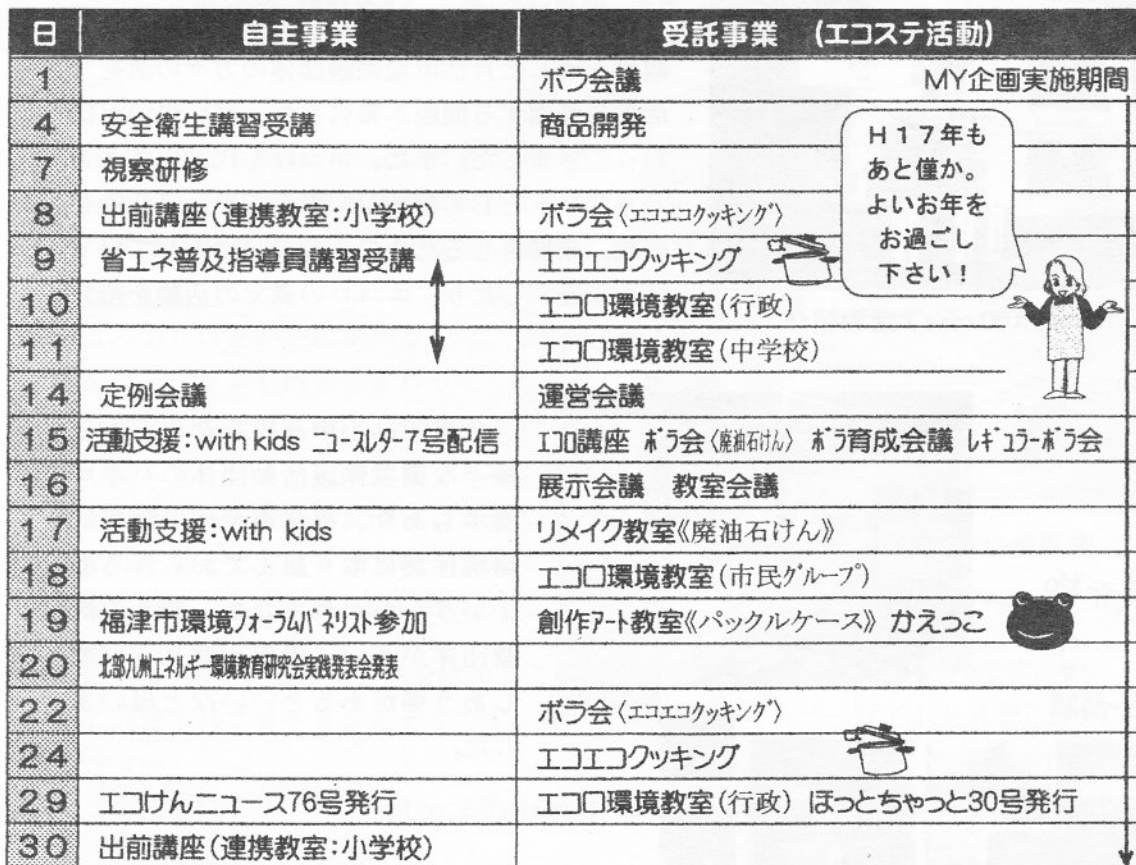 日 自主事業 受託事業 (エコステ活動)
1 ボラ会議 MY企画実施期間
4 安全衛生講習受講 商品開発
7 視察研修
8 出前講座(連携教室:小学校) ボラ会〈エコエコクッキング〉
9 省エネ普及指導員講習受講 エコエコクッキング
10 エコロ環境教室(行政)
11 エコロ環境教室(中学校)
14 定例会議 運営会議
15 活動支援:with kids ニュースレター7号配信 エコロ講座 ボラ会〈廃油石けん〉 ボラ育成会議 レギュラーボラ会
16 展示会議 教室会議
17 活動支援:with kids リメイク教室《廃油石けん》
18 エコロ環境教室(市民グループ)
19 福津市環境フォーラムパネリスト参加 創作アート教室《パックルケース》 かえっこ
20 北部九州エネルギー環境教育研究会実践発表会発表
22 ボラ会〈エコエコクッキング〉
24 エコエコクッキング
29 エコけんニュース76号発行 エコロ環境教室(行政) ほっとちゃっと30号発行
30 出前講座(連携教室:小学校)
H17年も
あと僅か。
よいお年を
お過ごし
下さい!